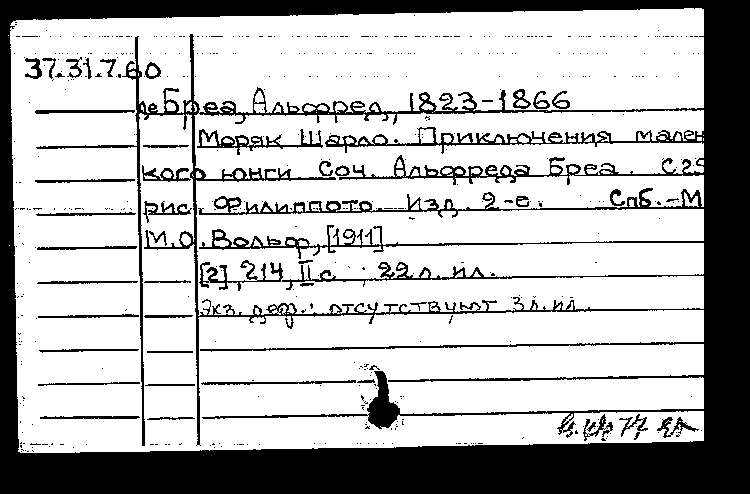 37.31.7.60
де Бреа, Альфред, 1823-1866
Моряк Шарло. Приключения мален
кого юнги. Соч. Альфреда Бреа. С 25
рис. Филиппото. Изд. 2-е. Спб.-М
М.О. Вольф, [1911]
[2], 214, II с., 22 л. ил.
Экз. деф.: отсутствуют 3 л. ил.